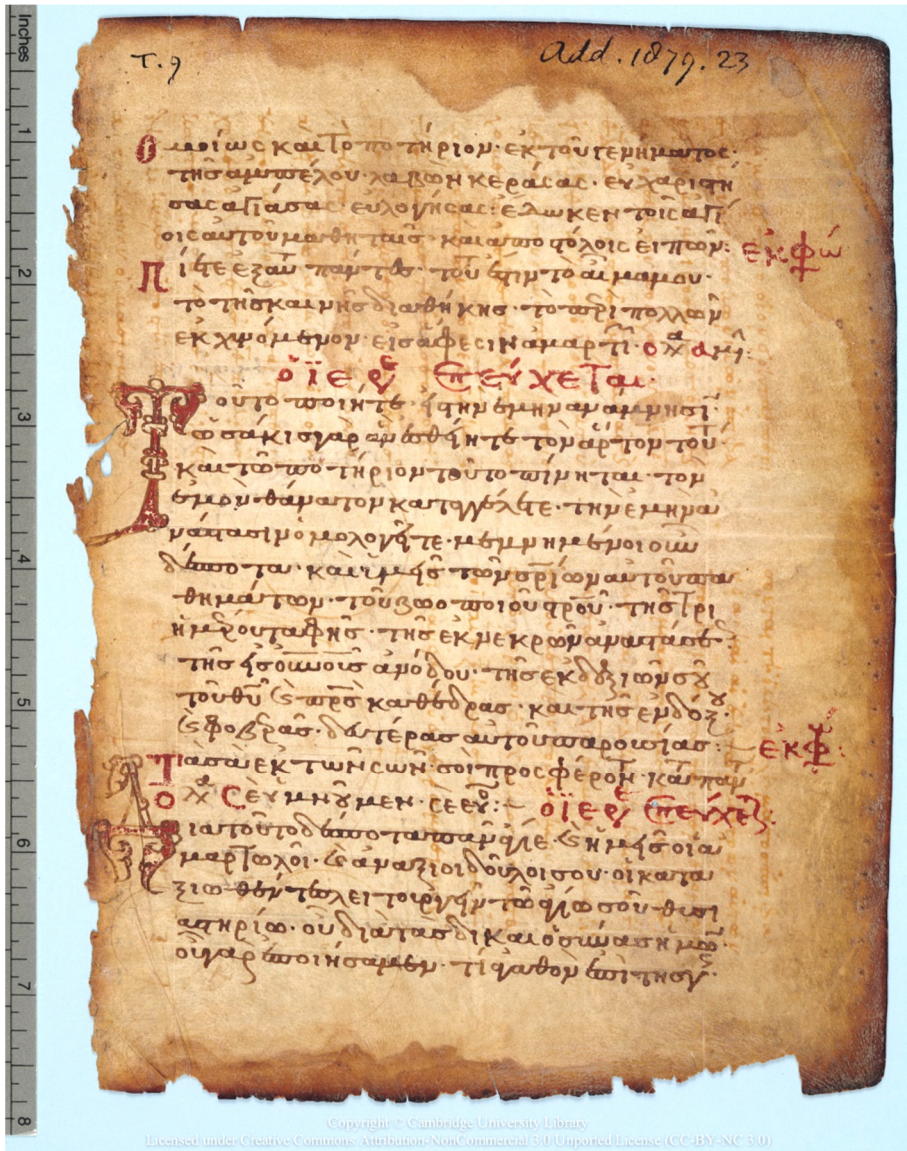 T. 9
Add. 1879. 23
Ὁμοίως καὶ τὸ ποτήριον· ἐκ τοῦ γεννήματος·
τῆς ἀμπέλου· λαβὼν κεράσας· εὐχαριστή
σας ἁγιάσας· εὐλογήσας· ἔδωκεν τοῖς ἁγί
οις αὐτοῦ μαθηταῖς καὶ ἀποστόλοις εἰπών: ἐκφώ
Πίετε ἐξ αὐ πάντες· τοῦ ἐστιν τὸ αἷμα μου·
τὸ τῆς καινῆς διαθήκης· τὸ περὶ πολλῶν
ἐκχυνόμενον· εἰς ἄφεσιν ἁμαρτι· ὁ χ ἀμ·
ὁ ἱερ ἐπεύχεται·
Τοῦτο ποιῆτε· εἰ τὴν ἐμὴν ἀνάμνησι·
ὡσάκις γὰρ ἂν ἐσθίητε τὸν ἄρτον τοῦ·
καὶ τὼ ποτήριον τοῦτο πίνηται· τὸν
ἐμὸν θάνατον καταγγέλετε· τὴν ἐμὴν ἀ
νάστασιν ὁμολογεῖτε· μεμνημένοι οὖν
δέσποτα· καὶ ἡμεῖς τῶν σρίων αὐτοῦ πα
θημάτων· τοῦ ζωοποιοῦ σροῦ· τῆς τρι
ημέρου ταφῆς· τῆς ἐκ νεκρῶν ἀναστάσε·
τῆς εἰς οὐνοὺς ἀνόδου· τῆς ἐκ δεξιῶν σοῦ
τοῦ θυ κ πρς καθέδρας· καὶ τῆς ἐνδόξου·
κ φοβερᾶς· δευτέρας αὐτοῦ παρουσίας: ἐκφ
Τὰ σὰ ἐκ τῶν σῶν· σοὶ προσφέρον· κατὰ παν
Ὁ χ Σὲ ὑμνοῦμεν· σὲ εὐ: ὁ ἱερ ἐπεύχετ
Διὰ τοῦτο δέσποτα πανάγιε· κ ἡμεῖς οἱ ἁ
μαρτωλοί· κ ἀνάξιοι δοῦλοί σου· οἱ κατα
ξιωθέντες λειτουργεῖν τῷ ἁγίω σου θυσι
αστηρίω· οὐ διὰ τὰς δικαιοσύνας ἡμῶ·
οὐ γὰρ ἐποιήσαμεν· τι ἀγαθὸν ἐπὶ τῆς γ·
Inches
1
2
3
4
5
6
7
8
Copyright © Cambridge University Library
Licensed under Creative Commons Attribution-NonCommercial 3.0 Unported License (CC-BY-NC 3.0)